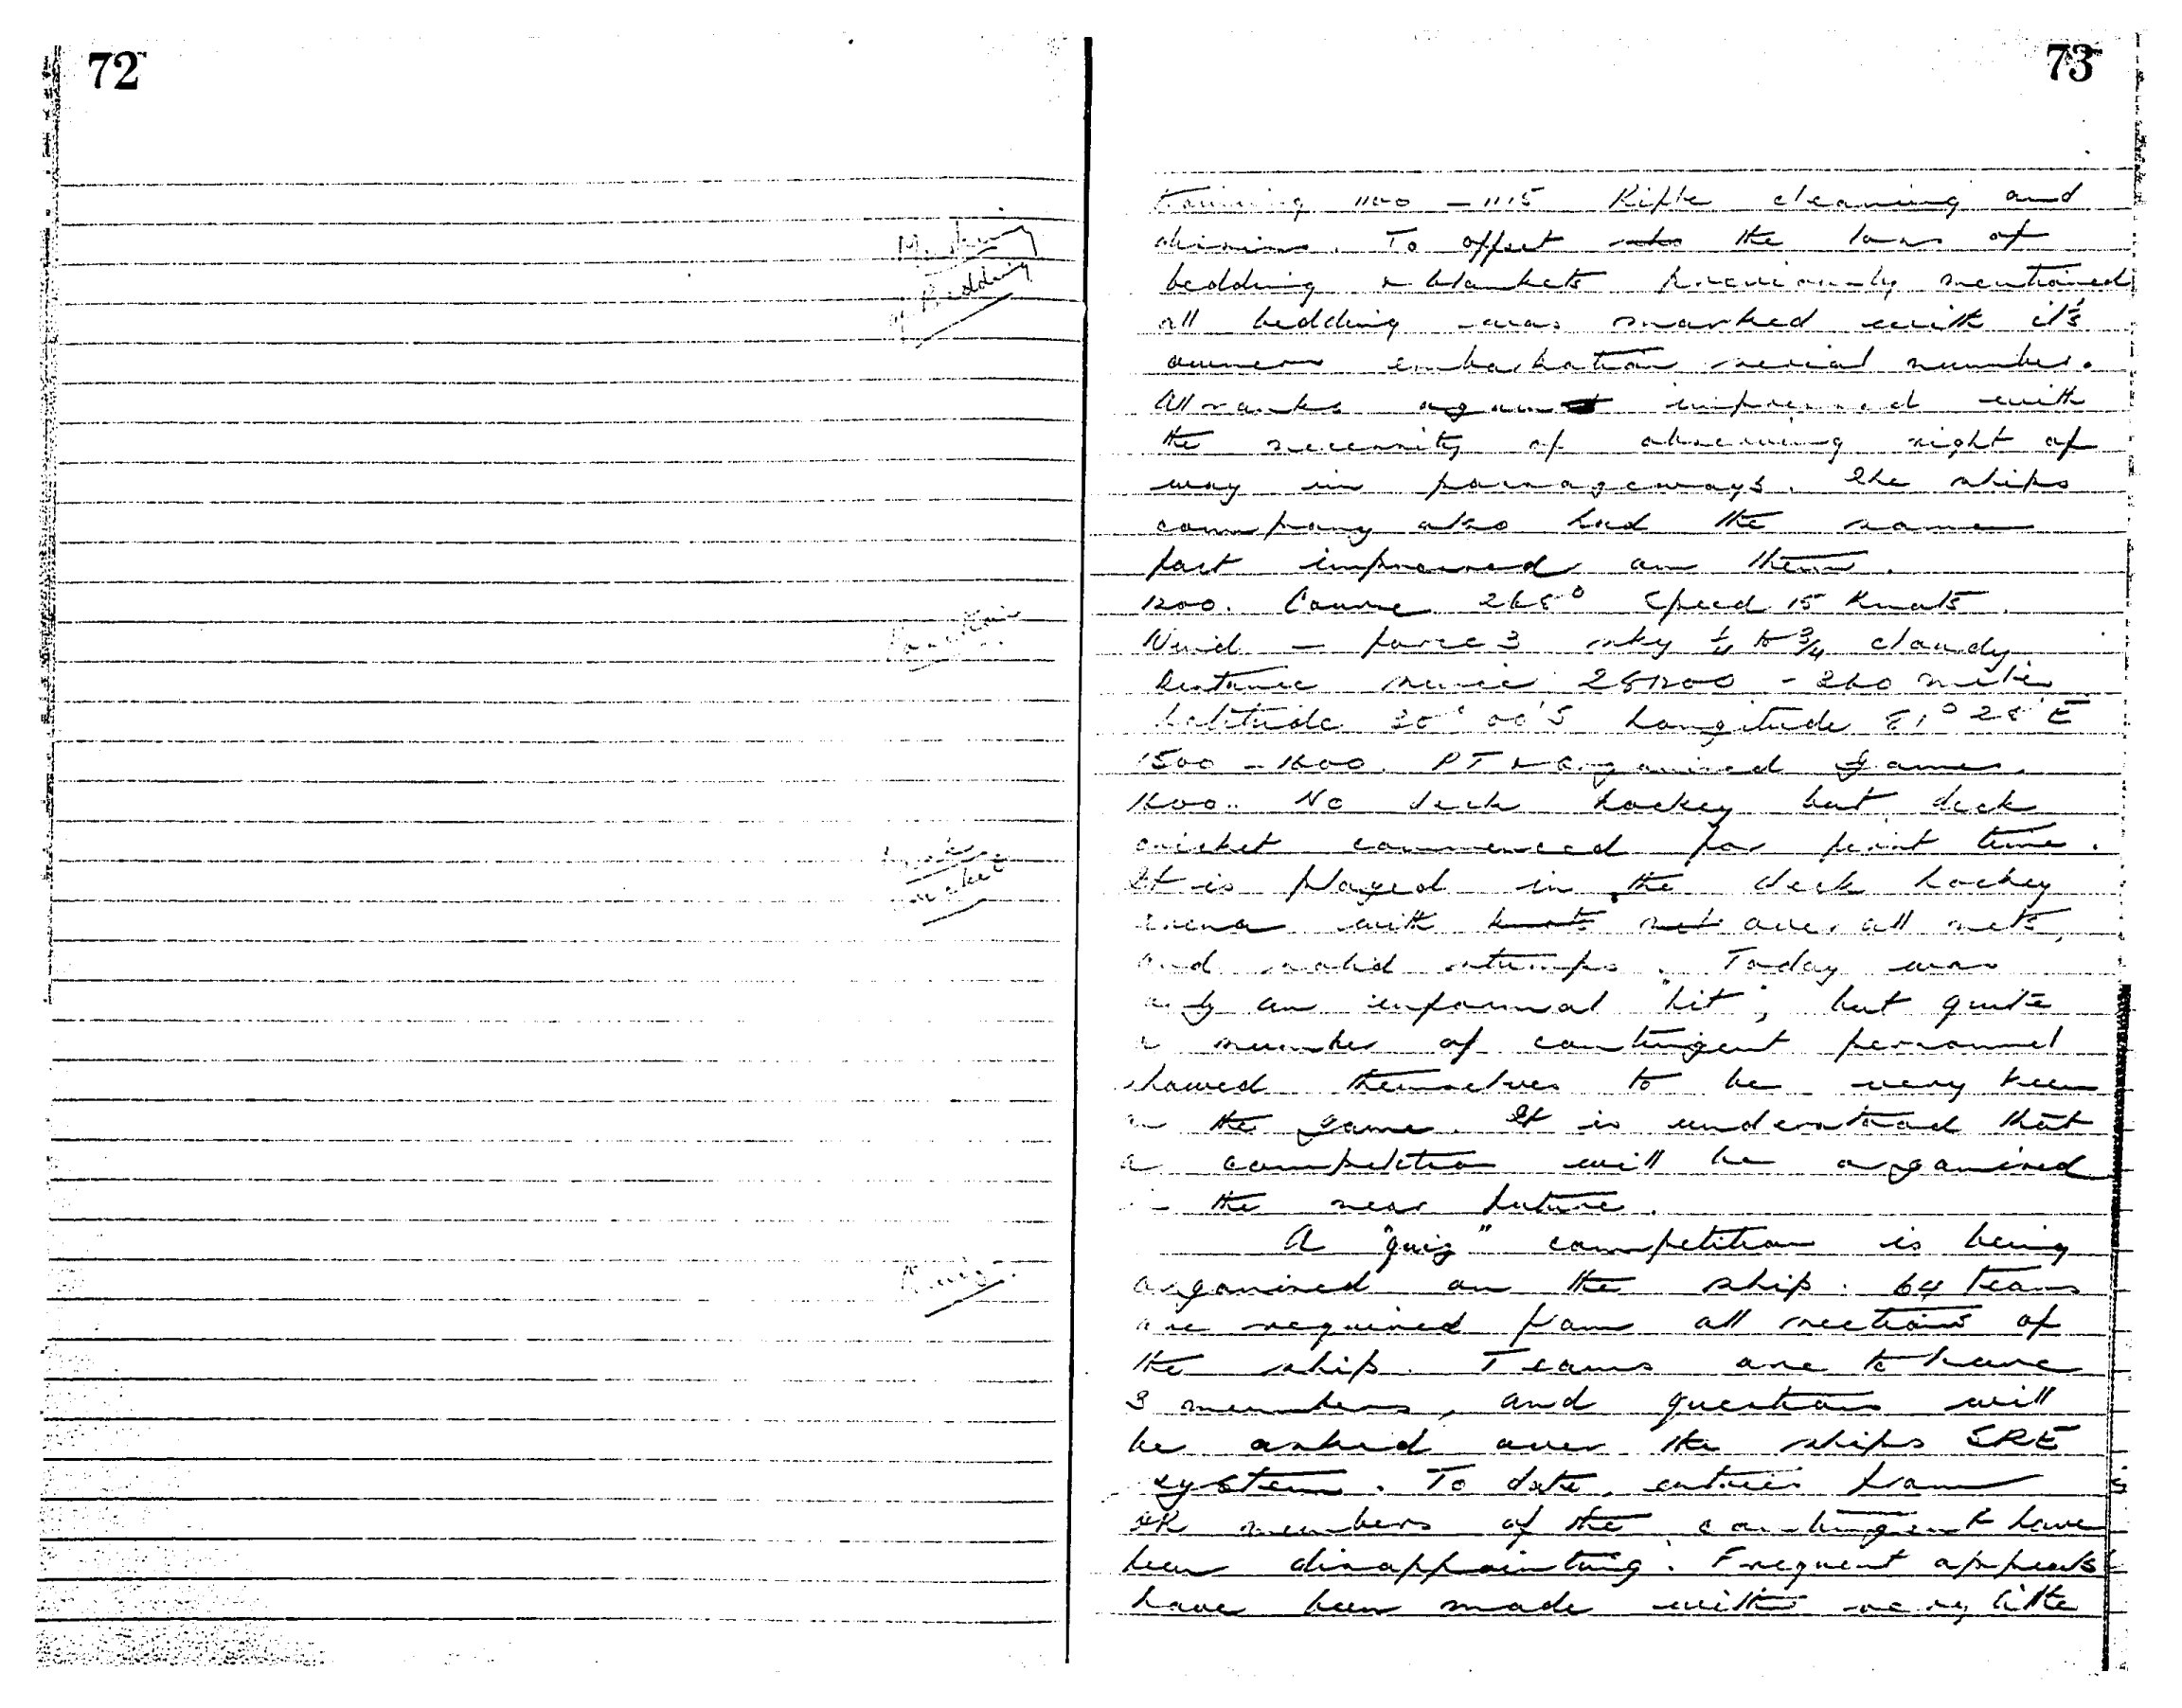 72
Marking
of Bedding
Position
Deck
Cricket
Quiz
73
training 1100 - 1115 Rifle cleaning and
airing. To offset the loss of
bedding & blankets previously mentioned
all bedding was marked with it's
owners embarkation serial number.
All ranks again impressed with
the necessity of observing right of
way in passageways. The ships
company also had the same
fact impressed on them.
1200. Course 268° Speed 15 Knots.
Wind - force 3 sky ¼ to ¾ cloudy
Distance since 281200 - 360 miles
Latitude 00'S Longitude 81° 28'E
1500 - 1600. PT & organised games.
1600. No deck hockey but deck
cricket commenced for first time.
It is played in the deck hockey
arena with knots net over all nets,
and solid stumps. Today was
only an informal "hit", but quite
a number of contingent personnel
showed themselves to be very keen
on the game. It is understood that
a competition will be organised
in the near future.
A "quiz" competition is being
organised on the ship. 64 teams
are required from all sections of
the ship. Teams are to have
3 members, and questions will
be asked over the ships SRE
system. To date, entries from
members of the contingent have
been disappointing. Frequent appeals
have been made with very little